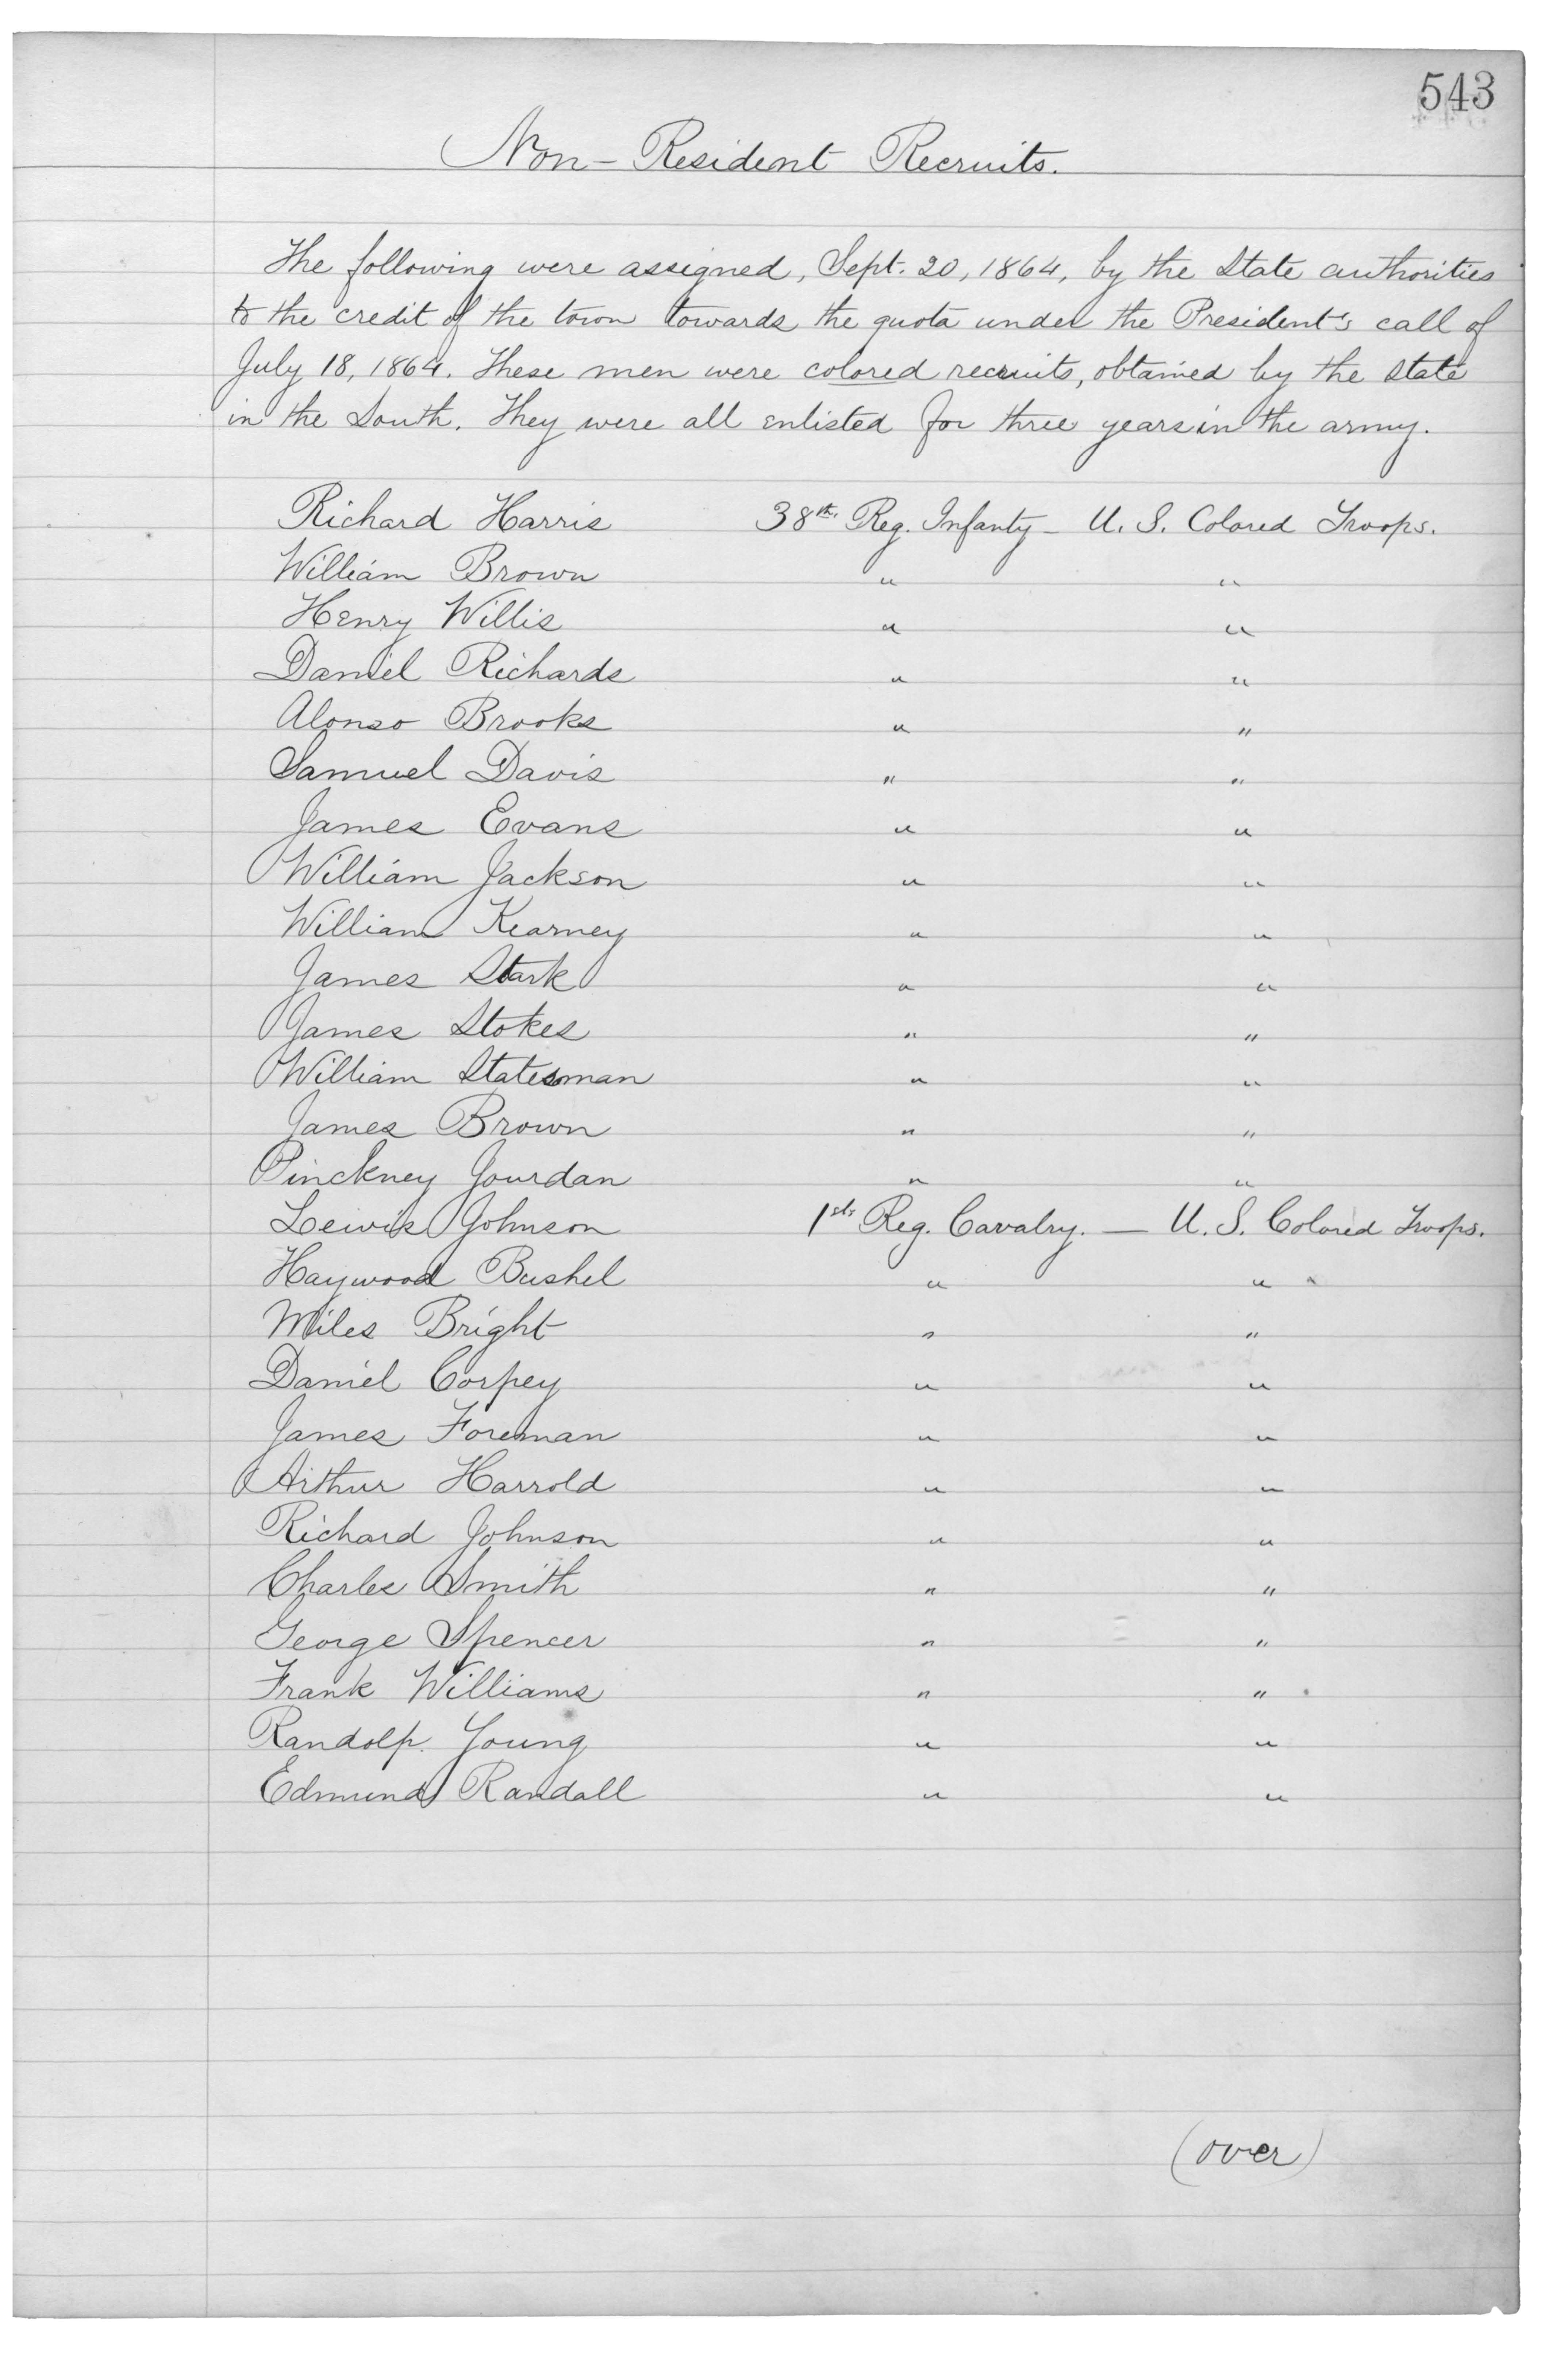 543
Non-Resident Recruits.
The following were assigned, Sept. 20, 1864, by the State authorities
to the credit of the town towards the quota under the President's call of
July 18, 1864. These men were colored recruits, obtained by the state
in the South. They were all enlisted for three years in the army.
Richard Harris 38th. Reg. Infanty - U. S. Colored Troops.
William Brown " "
Henry Willis " "
Daniel Richards " "
Alonso Brooks " "
Samuel Davis " "
James Evans " "
William Jackson " "
William Kearney " "
James Stark " "
James Stokes " "
William Statesman " "
James Brown " "
Pinckney Jourdan " "
Lewis Johnson 1st Reg. Cavalry. — U. S. Colored Troops.
Haywood Bushel " "
Miles Bright " "
Daniel Corpey " "
James Foreman " "
Arthur Harrold " "
Richard Johnson " "
Charles Smith " "
George Spencer " "
Frank Williams " "
Randolp. Young " "
Edmund Randall " "
(over)